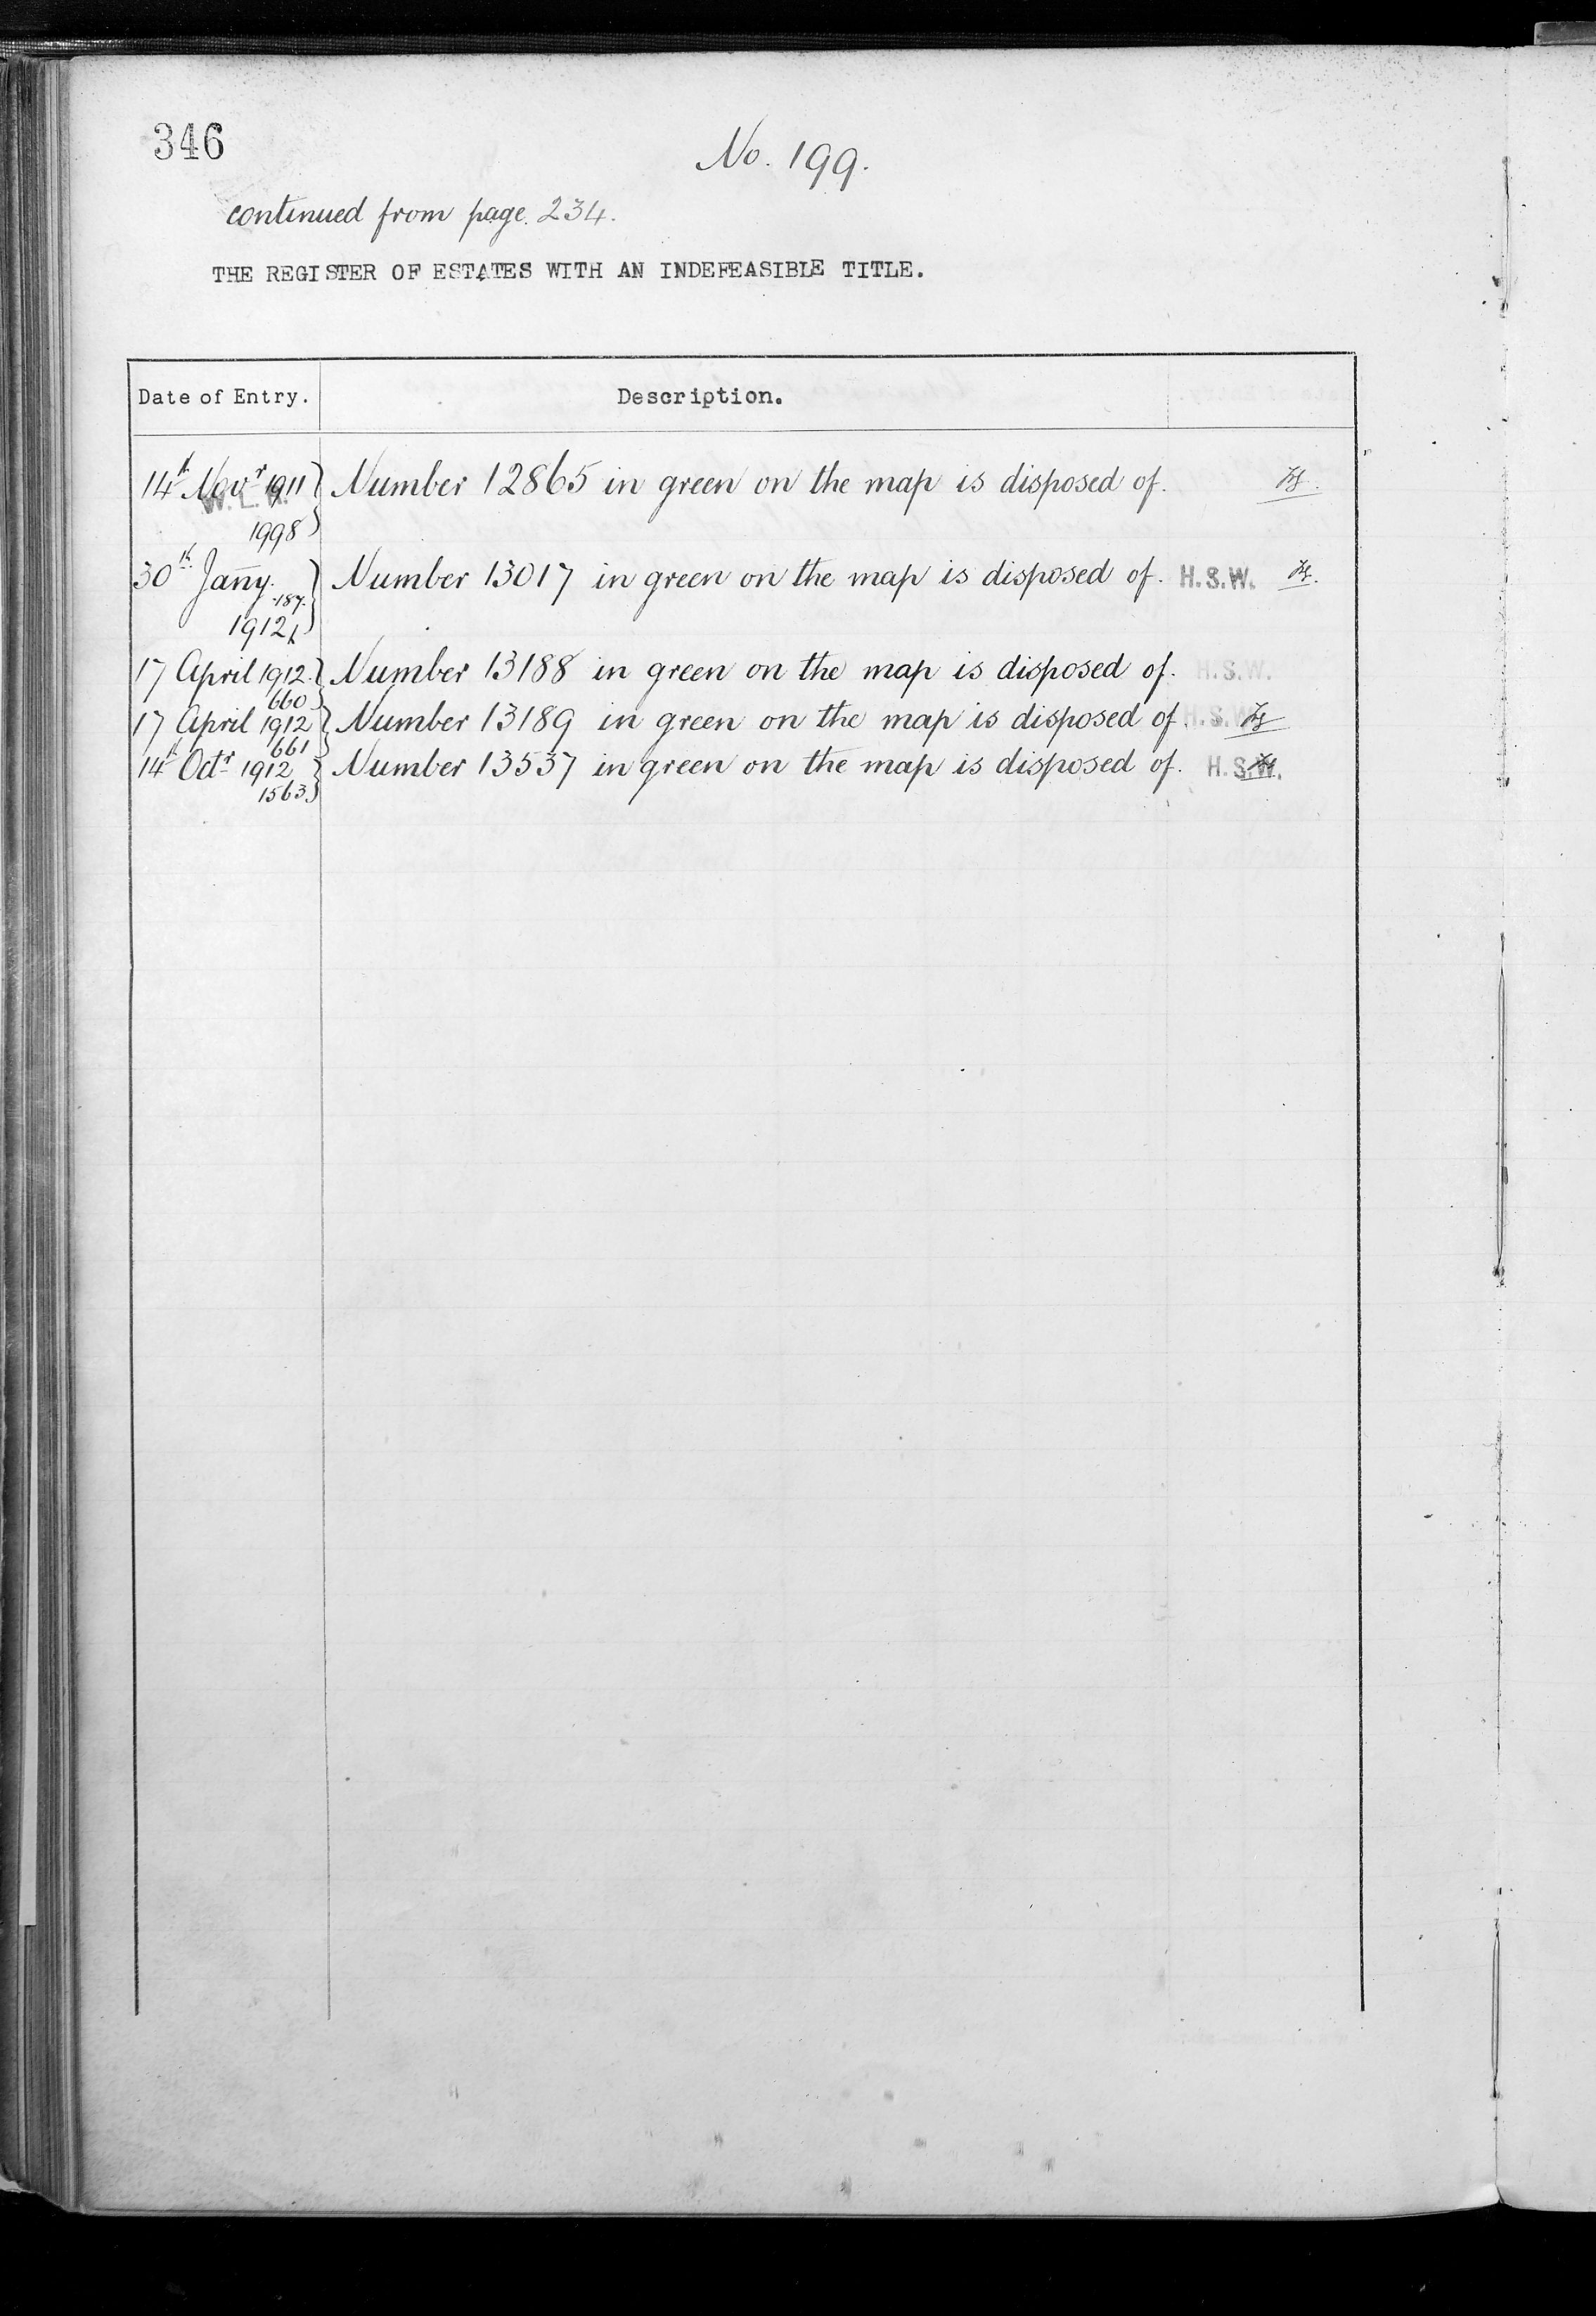 346
No. 199.
continued from page 234.
THE REGISTER OF ESTATES WITH AN INDEFEASIBLE TITLE.
Date of Entry. Description.
14th Novr 1911 } Number 12865 in green on the map is disposed of.
W. L.
1998
30th Jany. } Number 13017 in green on the map is disposed of. H.S.W.
187.
1912
17 April 1912. } Number 13188 in green on the map is disposed of. H.S.W.
660
17 April 1912 } Number 13189 in green on the map is disposed of. H.S.W.
661
14th Octr 1912 } Number 13537 in green on the map is disposed of. H.S.W.
1563